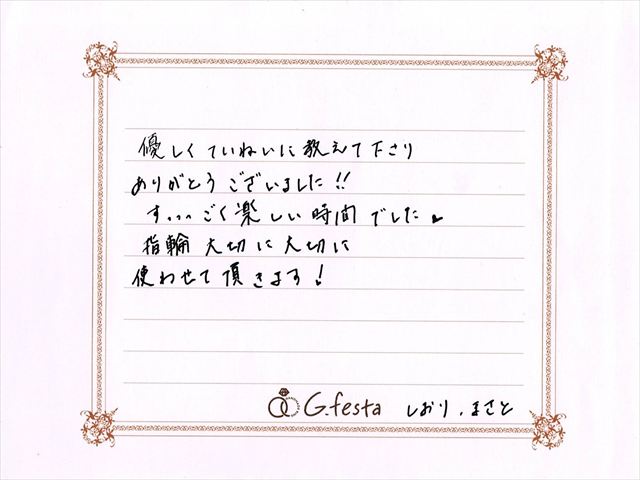 優しくていねいに教えて下さり
ありがとうございました!!
すっっっごく楽しい時間でした♥
指輪 大切に大切に
使わせて頂きます!
G.festa しおり、まさと